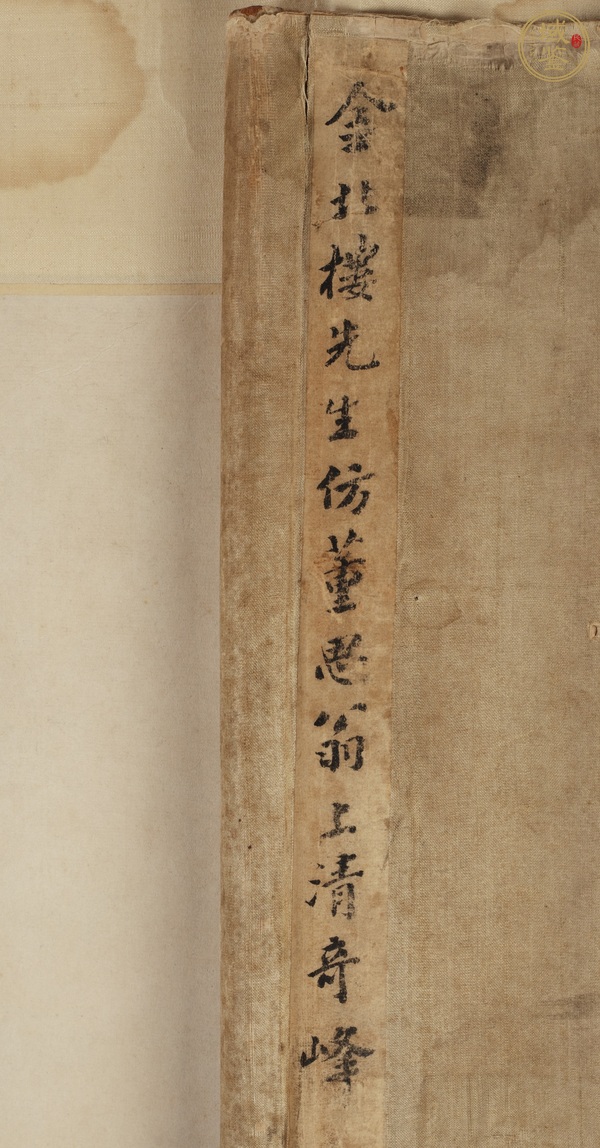 金北樓先生仿董思翁上清奇峰